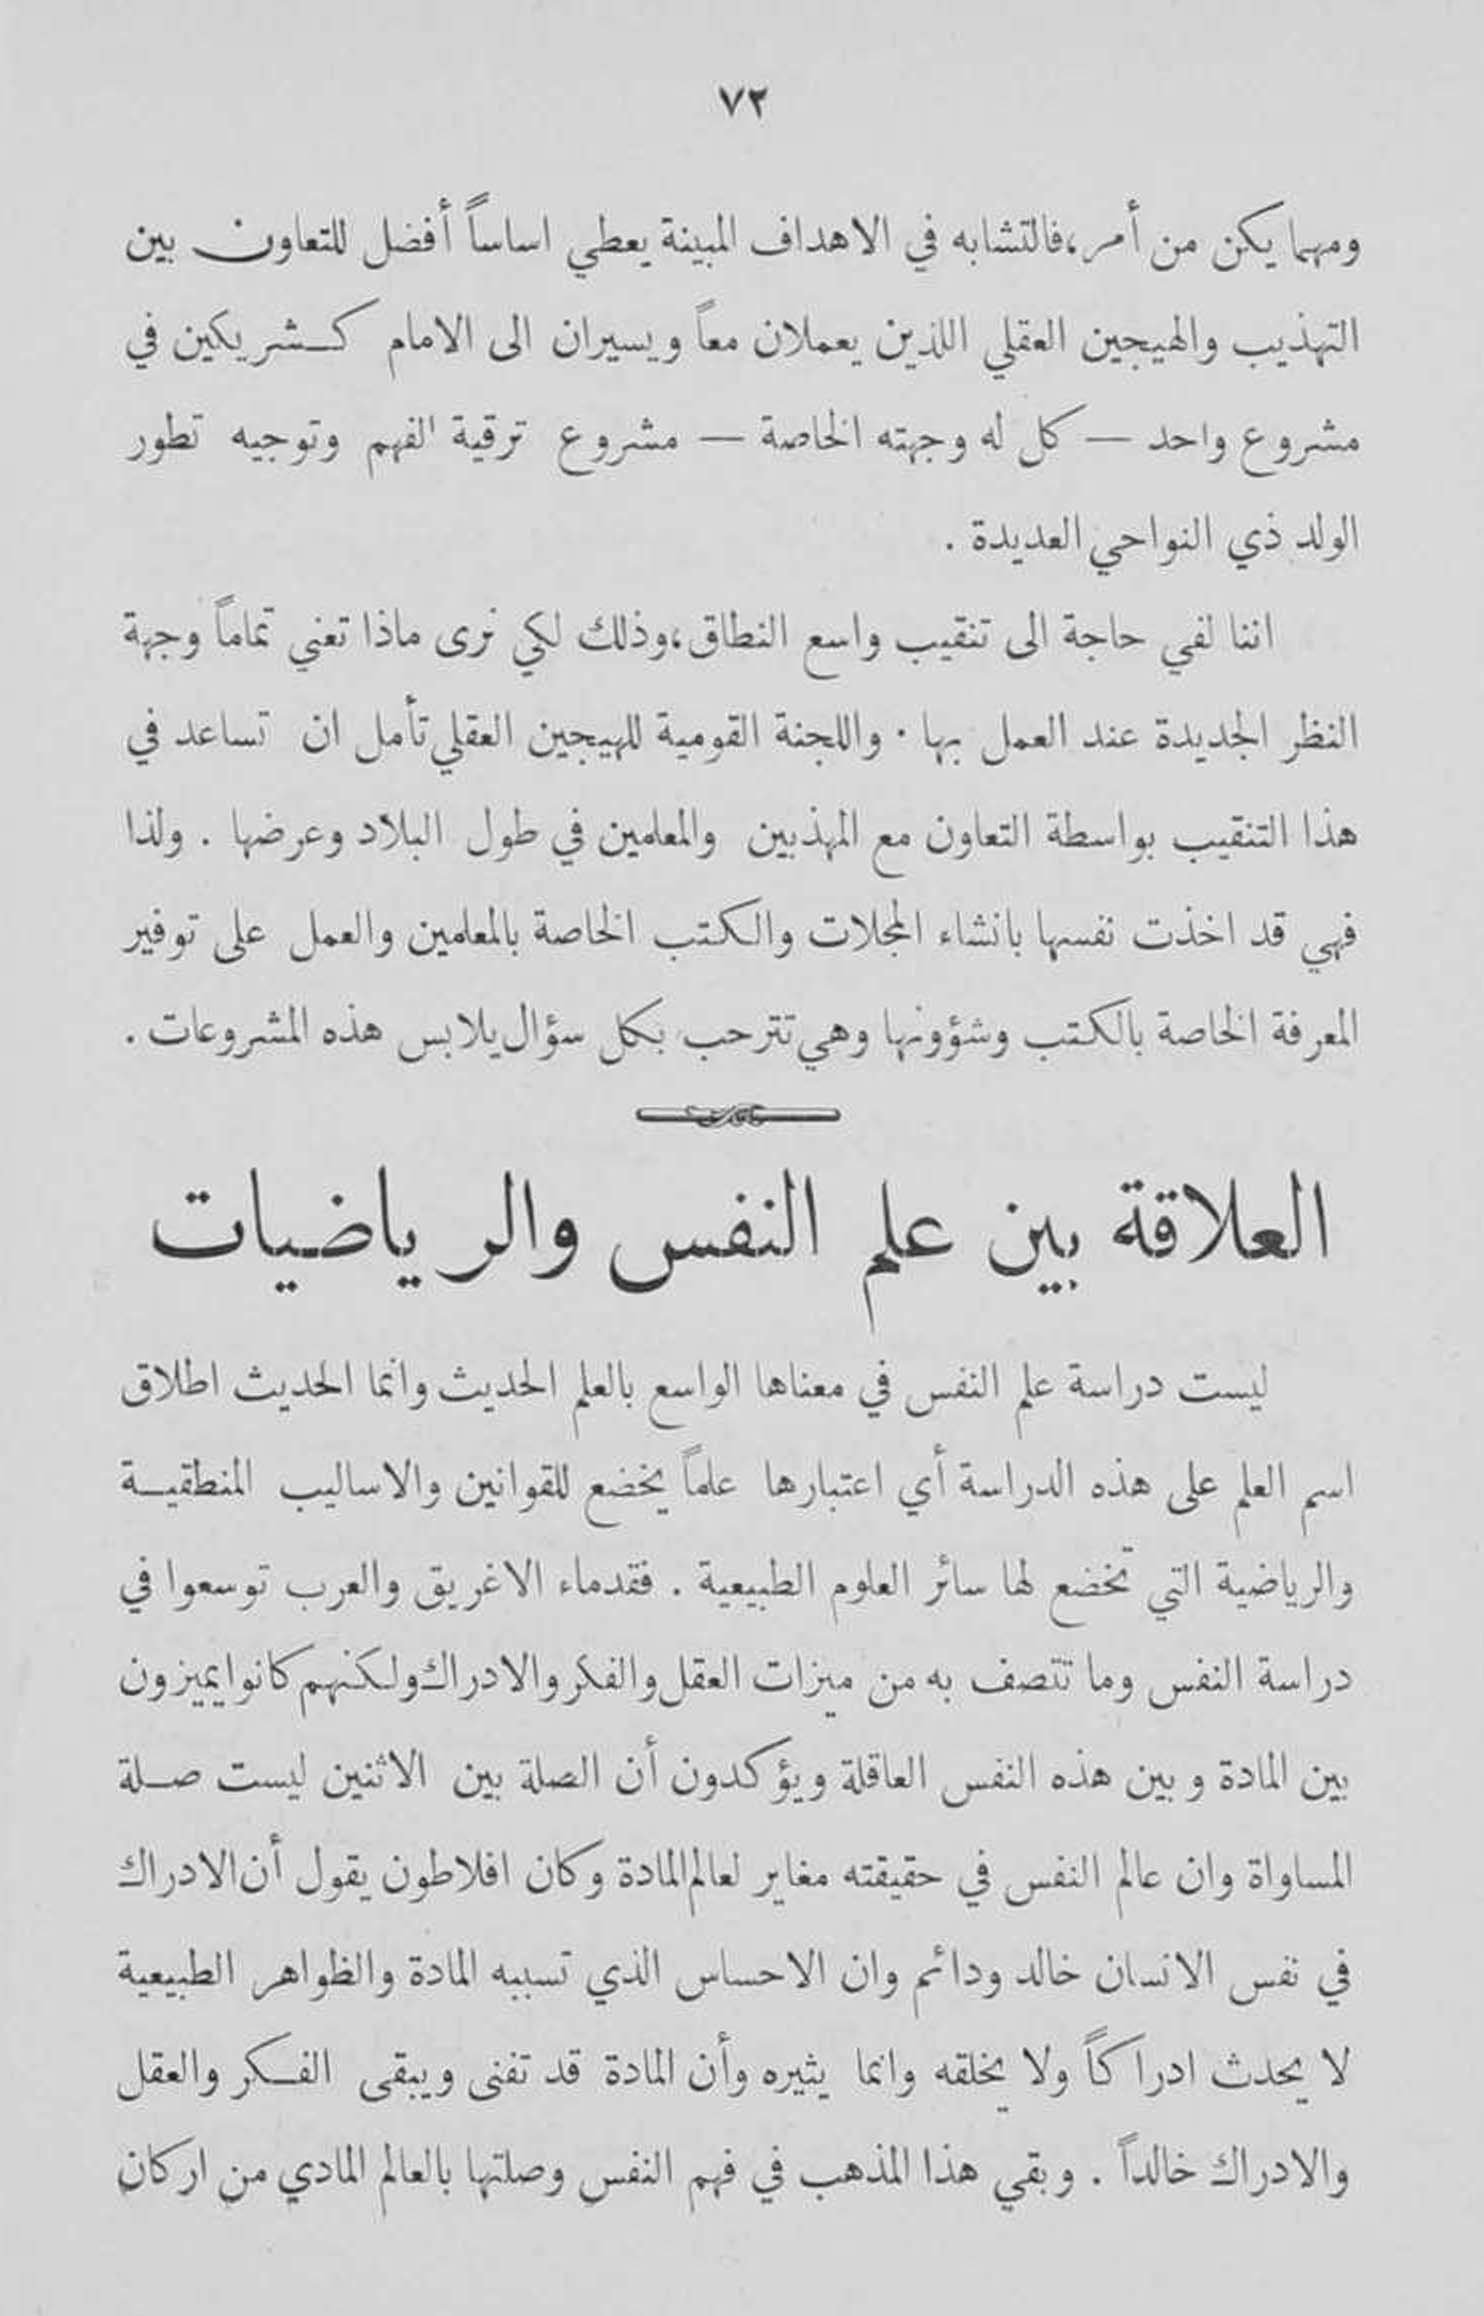 ٧٢
ومهما يكن من أمر، فالتشابه في الاهداف المبينة يعطي اساساً أفضل للتعاون بين
التهذيب والهيجين العقلي اللذين يعملان معاً ويسيران الى الامام كشريكين في
مشروع واحد — كل له وجهته الخاصة — مشروع ترقية الفهم وتوجيه تطور
الولد ذي النواحي العديدة .
اننا لفي حاجة الى تنقيب واسع النطاق، وذلك لكي نرى ماذا تعني تماماً وجهة
النظر الجديدة عند العمل بها . واللجنة القومية للهيجين العقلي تأمل ان تساعد في
هذا التنقيب بواسطة التعاون مع المهذبين والمعلمين في طول البلاد وعرضها . ولذا
فهي قد اخذت نفسها بانشاء المجلات والكتب الخاصة بالمعلمين والعمل على توفير
المعرفة الخاصة بالكتب وشؤونها وهي تترحب بكل سؤال يلابس هذه المشروعات .
العلاقة بين علم النفس والرياضيات
ليست دراسة علم النفس في معناها الواسع بالعلم الحديث وانما الحديث اطلاق
اسم العلم على هذه الدراسة أي اعتبارها علماً يخضع للقوانين والاساليب المنطقية
والرياضية التي تخضع لها سائر العلوم الطبيعية . فقدماء الاغريق والعرب توسعوا في
دراسة النفس وما تتصف به من ميزات العقل والفكر والادراك ولكنهم كانوا يميزون
بين المادة وبين هذه النفس العاقلة ويؤكدون أن الصلة بين الاثنين ليست صلة
المساواة وان عالم النفس في حقيقته مغاير لعالم المادة وكان افلاطون يقول أن الادراك
في نفس الانسان خالد ودائم وان الاحساس الذي تسببه المادة والظواهر الطبيعية
لا يحدث ادراكاً ولا يخلقه وانما يثيره وأن المادة قد تفنى ويبقى الفكر والعقل
والادراك خالداً . وبقي هذا المذهب في فهم النفس وصلتها بالعالم المادي من اركان